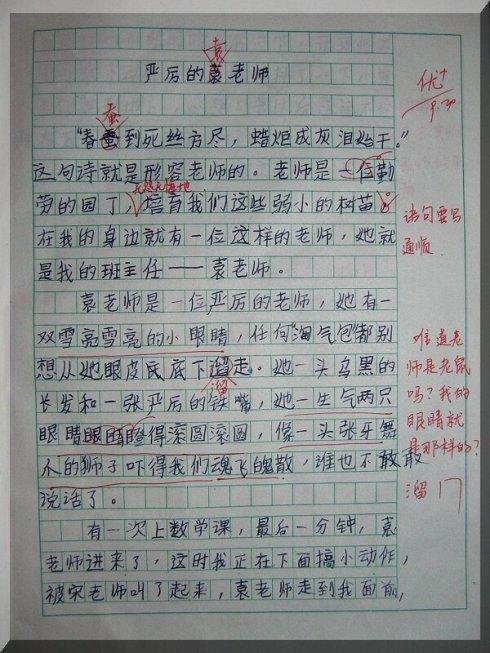 袁
严厉的袁老师
优+
9.30
蚕
"春蚕到死丝方尽，蜡炬成灰泪始干。"
这句诗就是形容老师的。老师是一位勤
无怨无悔地
劳的园丁，培育我们这些弱小的树苗。
在我的身边就有一位这样的老师，她就
是我的班主任——袁老师。
语句要写
通顺
袁老师是一位严厉的老师，她有一
双雪亮雪亮的小眼睛，任何"淘气包"都别
想从她眼皮底底下溜走。她一头乌黑的
溜
长发和一张严厉的铁嘴，她一生气两只
眼睛眼睛瞪得滚圆滚圆，像一头张牙舞
爪的狮子吓得我们魂飞魄散，谁也不敢敢
说话了。
难道老
师是老鼠
吗？我的
眼睛就
是那样的？
溜
有一次上数学课，最后一分钟，袁
老师进来了，这时我正在下面搞小动作，
被宋老师叫了起来，袁老师走到我面前，